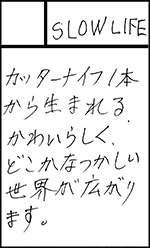 SLOW LIFE
カッターナイフ1本
から生まれる
かわいらしく、
どこかなつかしい
世界が広がり
ます。